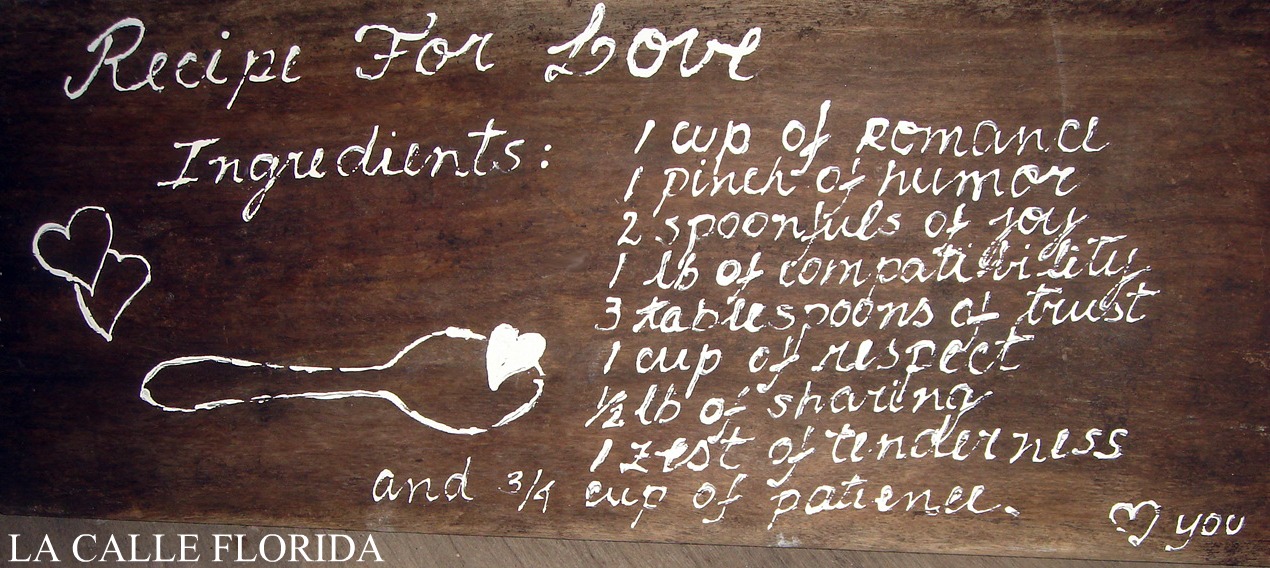 Recipe For Love
Ingredients:
1 cup of Romance
1 pinch of humor
2 spoonfuls of joy
1 lb of compatibility
3 tablespoons of trust
1 cup of respect
1/2 lb of sharing
1 zest of tenderness
and 3/4 cup of patience.
♡ you
LA CALLE FLORIDA